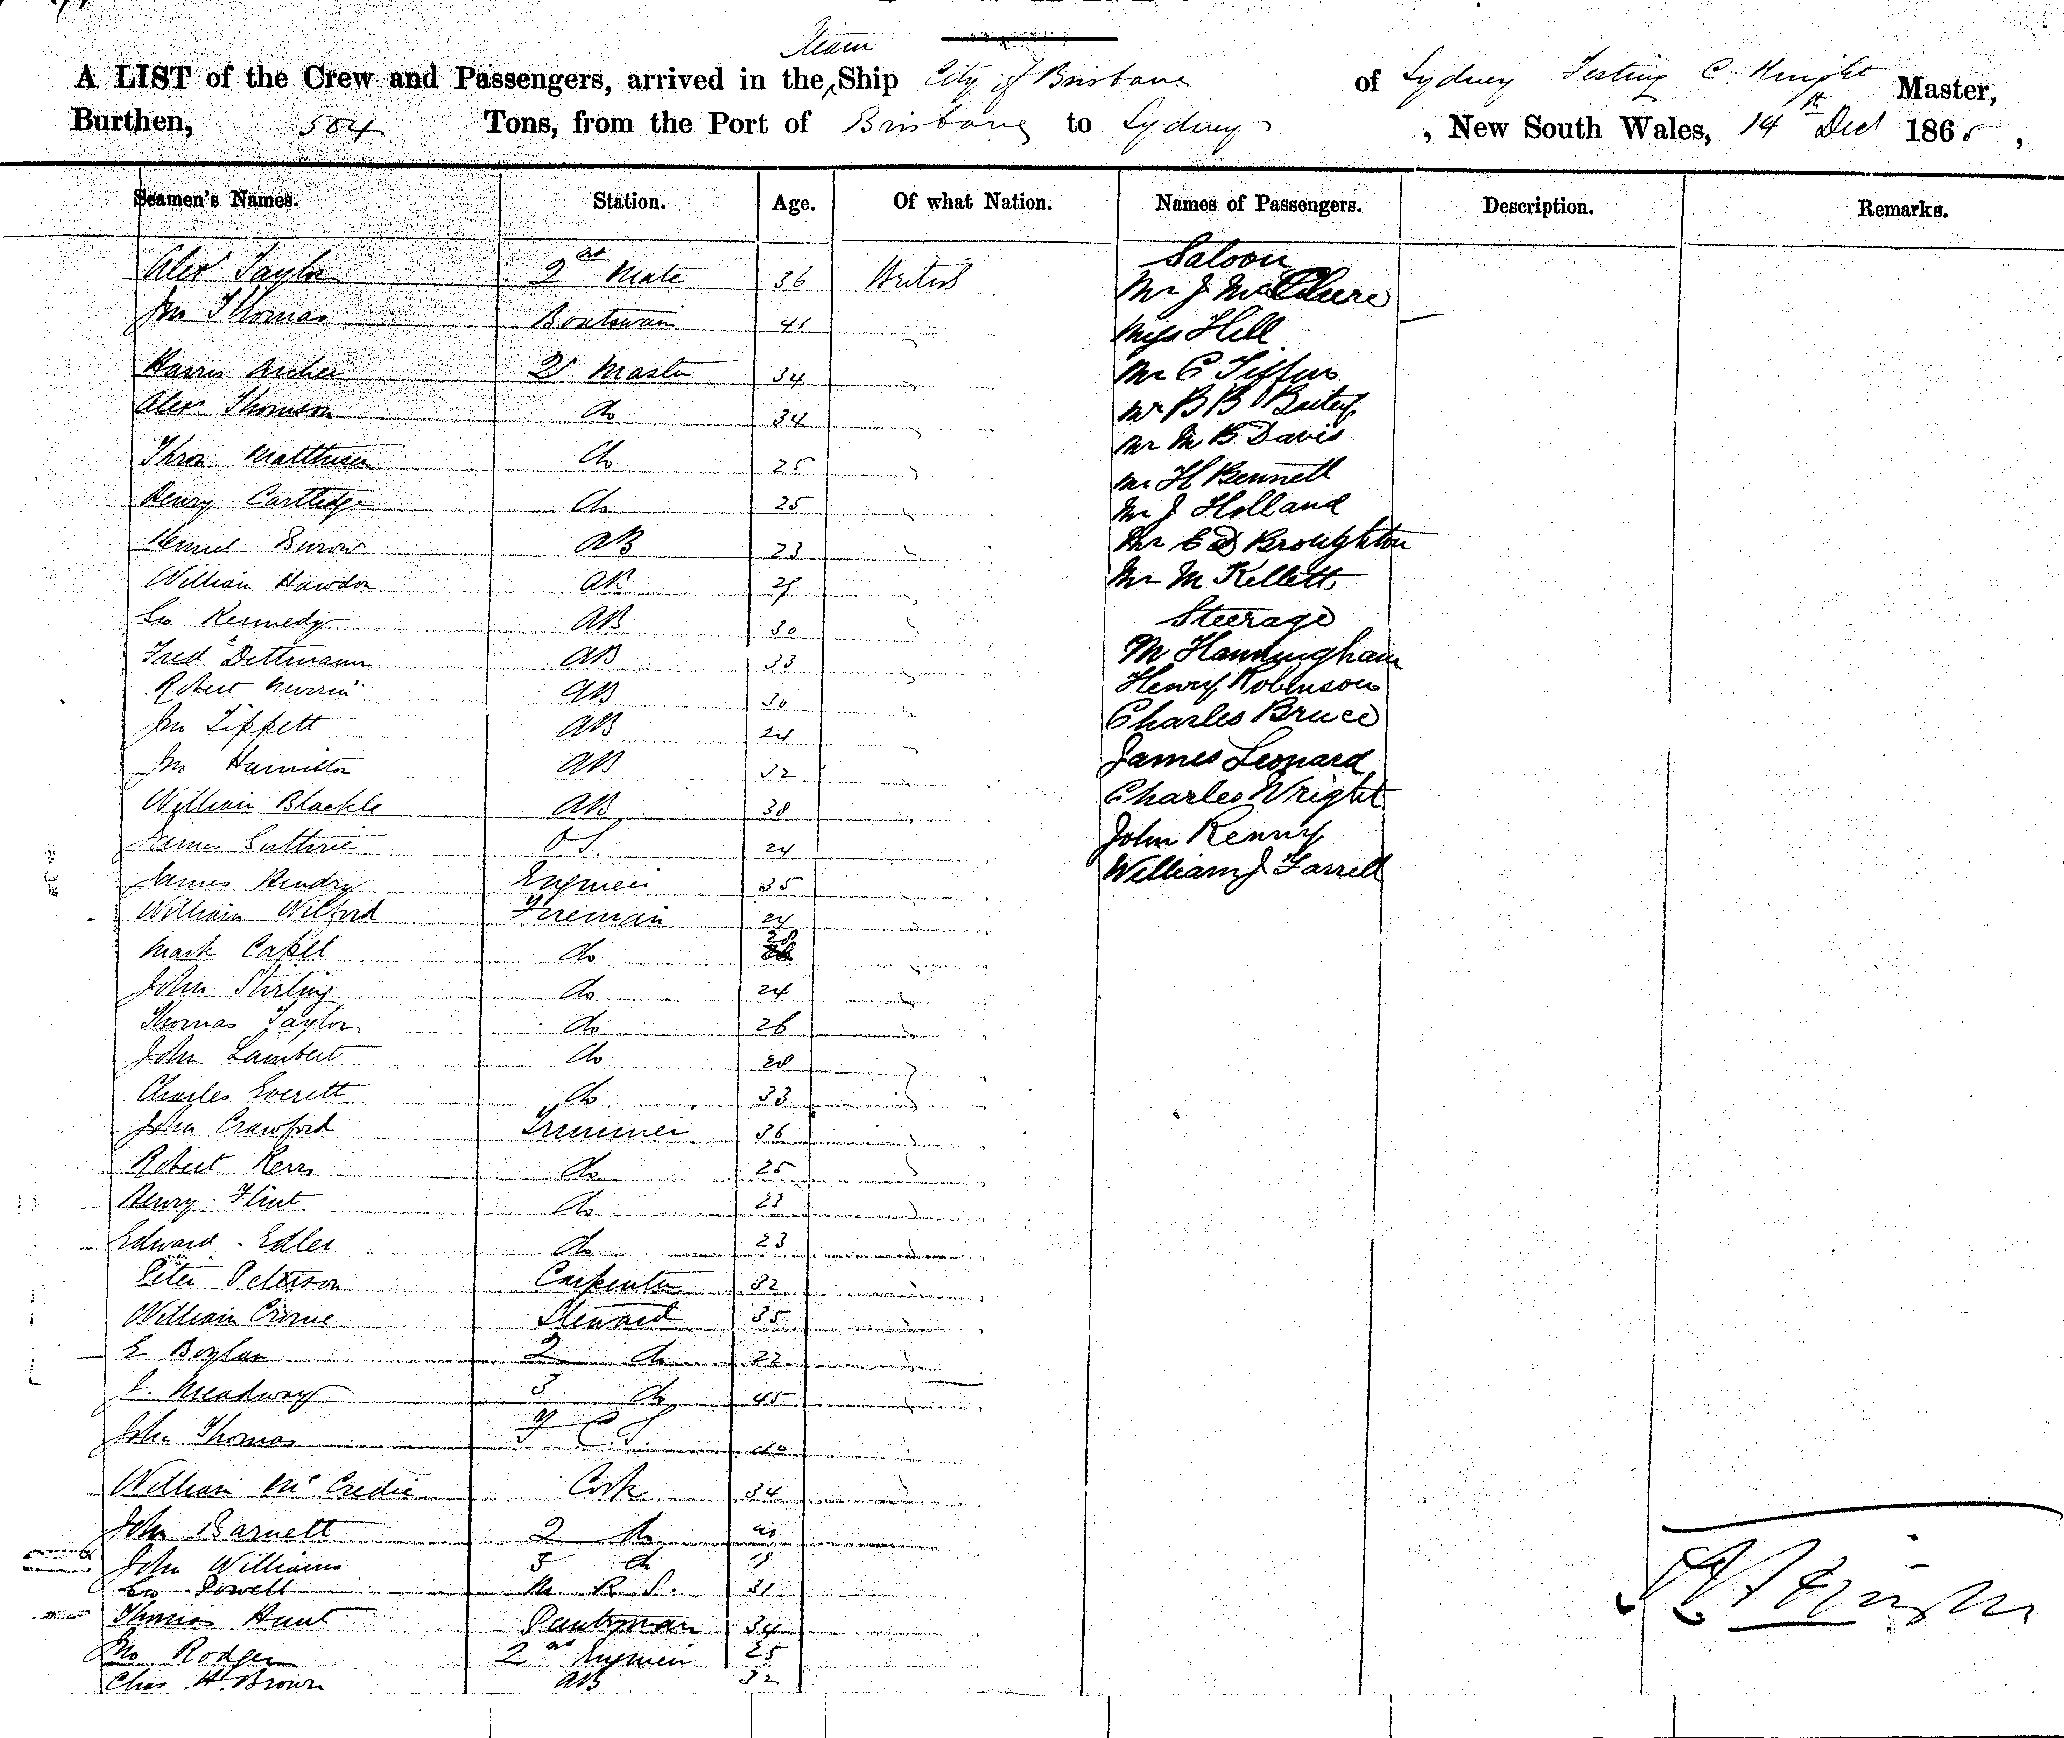 Steam
A LIST of the Crew and Passengers, arrived in the Ship City of Brisbane of Sydney Testing C. Knight Master,
Burthen, 504 Tons, from the Port of Brisbane to Sydney, New South Wales, 14th Decr 1865,
Seamen's Names. Station. Age. Of what Nation. Names of Passengers. Description. Remarks.
Saloon
Alexr Taylor 2nd Mate 36 British Mr J McClure
Jno Thomas Boatswain 41 Miss Hill
Harris Archer 2r Master 34 Mr C Tiffin
Alexr Thomson do 34 Mr B B
Thos Matthews do 25 Mr M B Davis
Henry Cartledge do 25 Mr H Bennett
Mr J Holland
AB 23 Mr E D Broughton
William Hawdon AB 29 Mr M Kellett
Geo Kennedy AB 30 Steerage
Fred Dettmann AB 33 M Hanningham
Robert AB 30 Henry Robinson
Jno Tippett AB 24 Charles Bruce
Jno Hamilton AB 32 James Leonard
William Blackle AB 38 Charles Wright
James Guthrie O S. 24 John Kenny
James Hendry Engineer 35 William J Farrell
William Wilford Fireman 24
Mark Capell do 28
John Stirling do 24
Thomas Taylor do 26
John Lambert do 28
Charles Everett do 33
John Crawford Trimmer 36
Robert Kerr do 25
Henry Flint do 23
Edward Edler do 23
Peter Peterson Carpenter 32
William Crome Steward 35
E Boylan 2 do 22
J. Meadway 3 do 45
John Thomas F C S. 40
William McCredie Cook 34
John Barnett 2 do 40
John Williams 3 do
Geo Powell M. R. S. 31
Thomas Hunt Pantryman 34
Jno Rodger 2nd Engineer 25
Chas H. Brown AB 32